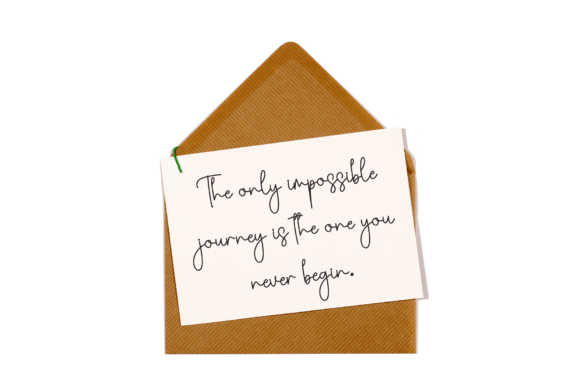 The only impossible
journey is the one you
never begin.